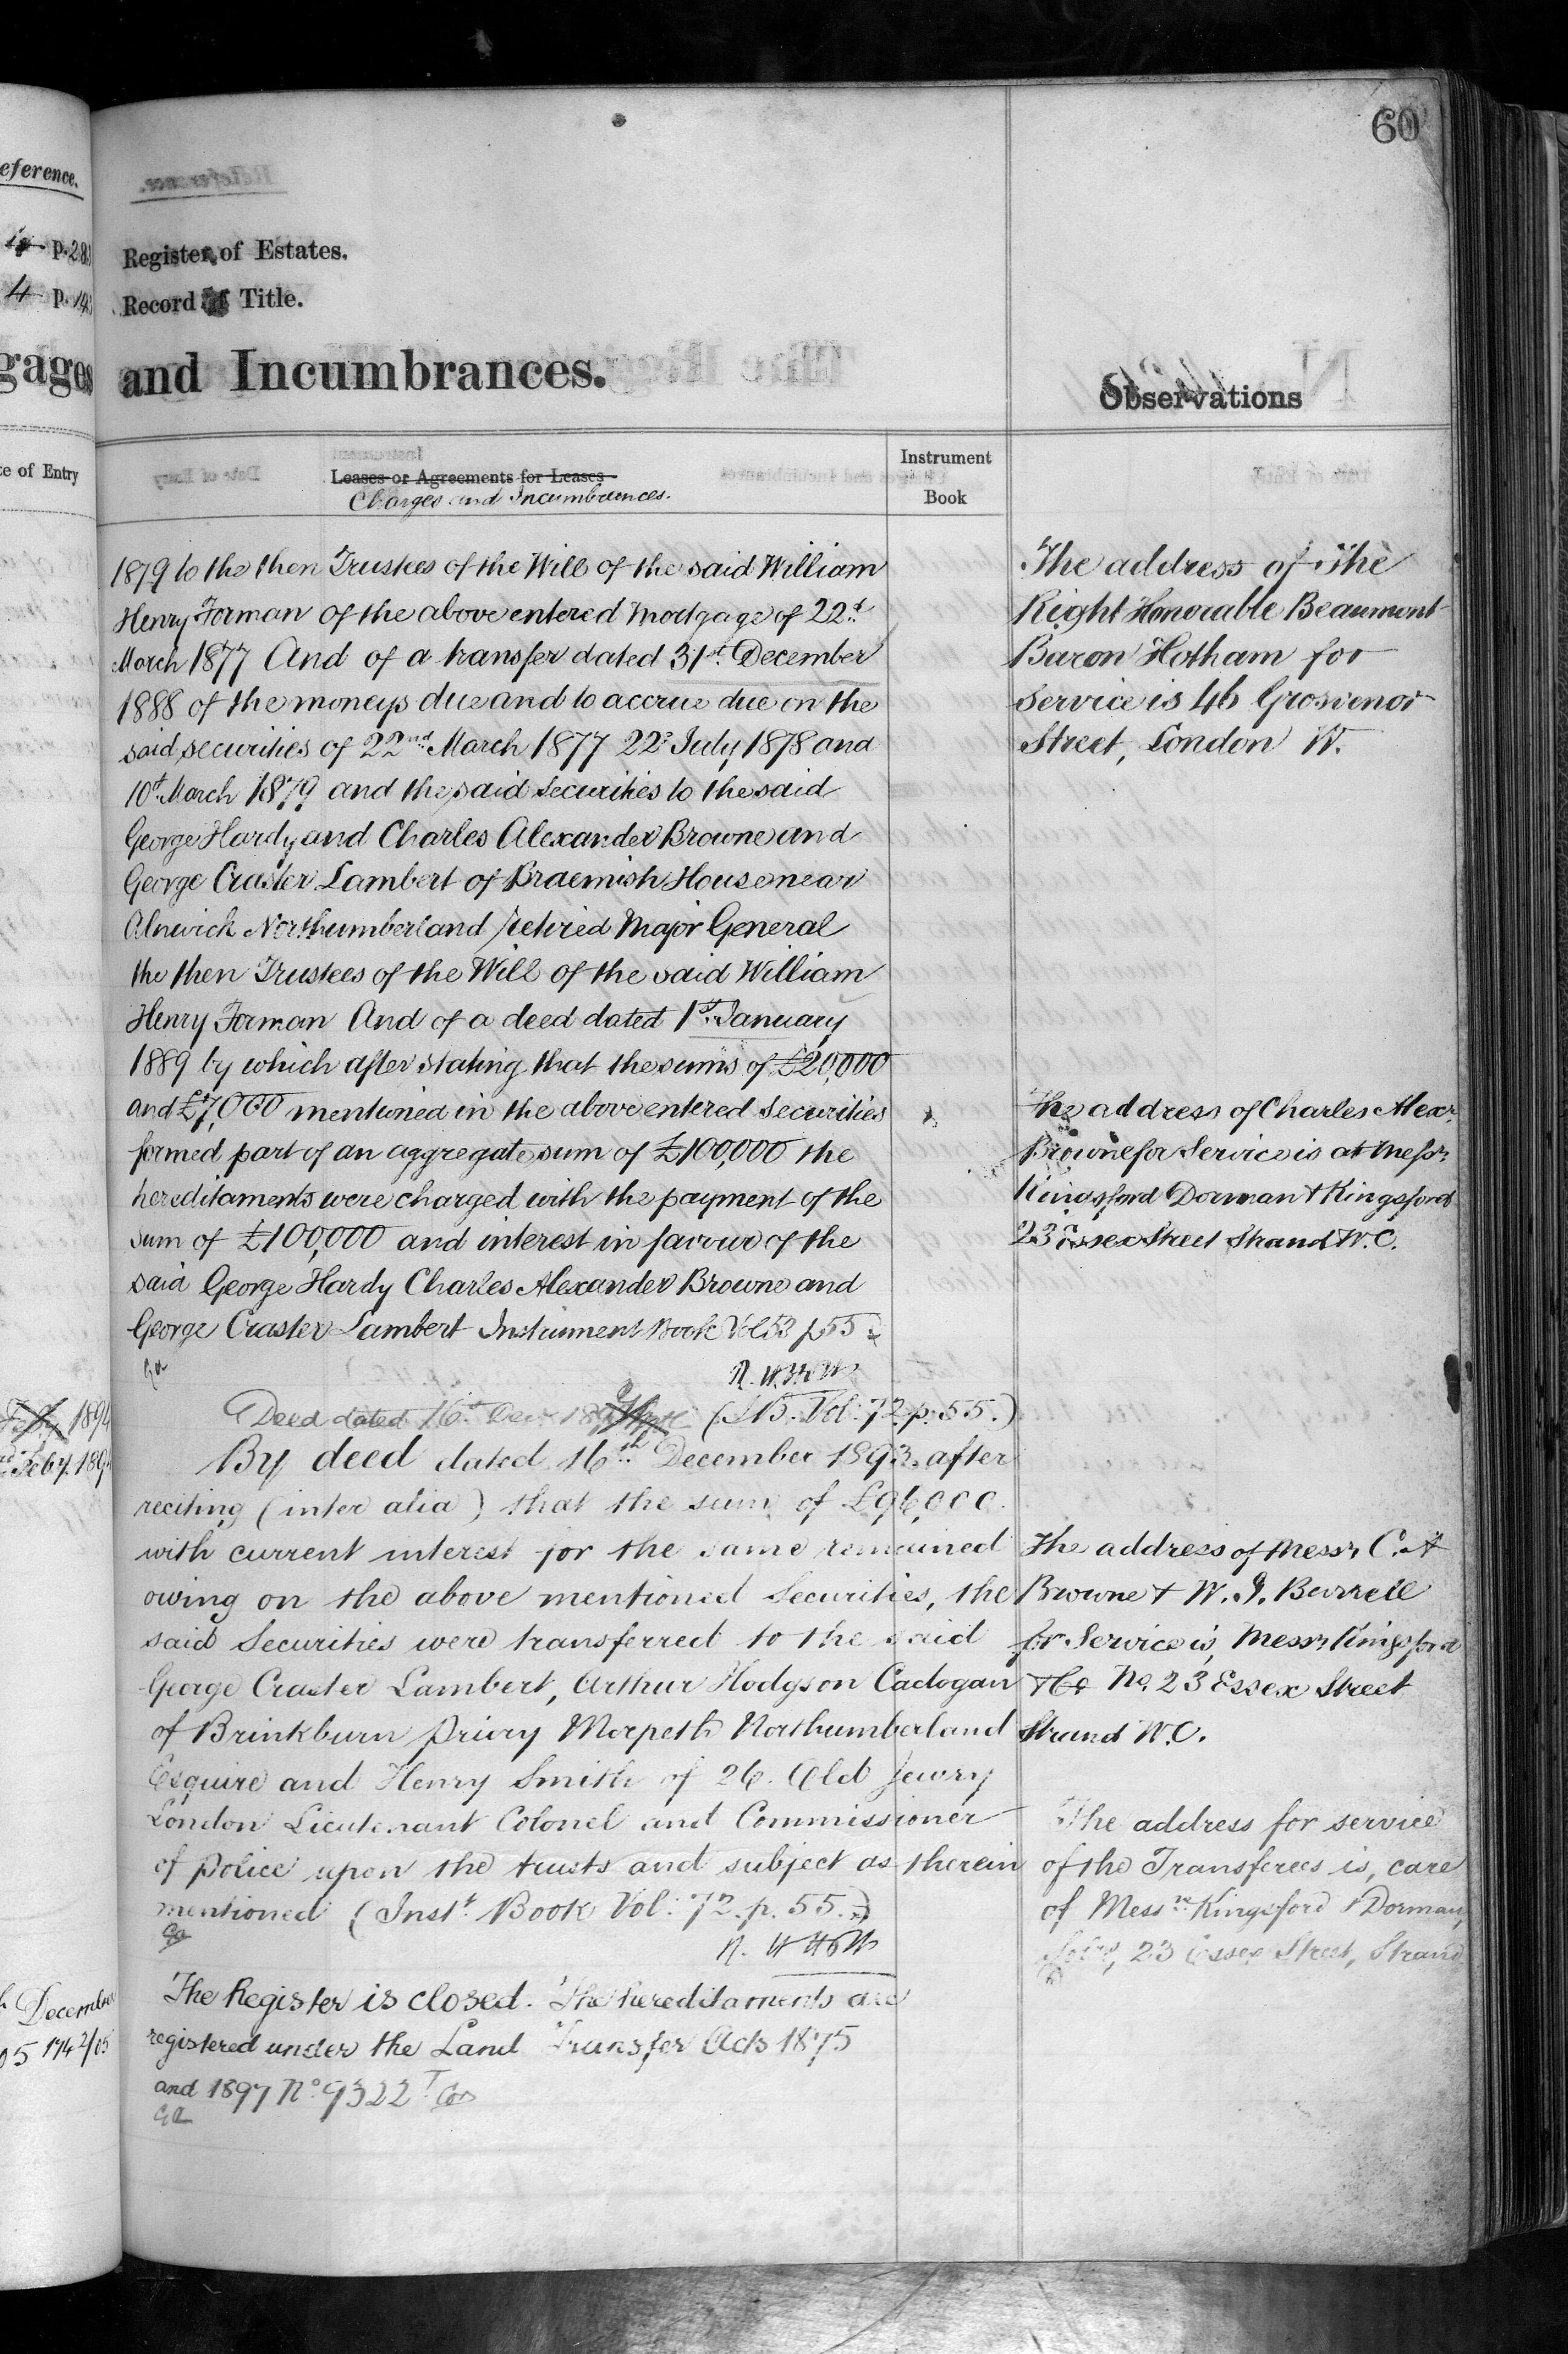 60
eference.
p. 28
4 p. 193
Register of Estates.
Record of Title.
gages and Incumbrances.
Observations
te of Entry
Leases or Agreements for Leases
Charges and Incumbrances.
Instrument
Book
1879 to the then Trustees of the Will of the said William
Henry Forman of the above entered Mortgage of 22d
March 1877 And of a transfer dated 31st December
1888 of the moneys due and to accrue due on the
said securities of 22nd March 1877 22d July 1878 and
10th March 1879 and the said securities to the said
George Hardy and Charles Alexander Browne and
George Craster Lambert of Braemish House near
Alnwick Northumberland retired Major General
the then Trustees of the Will of the said William
Henry Forman And of a deed dated 1st January
1889 by which after stating that the sums of £20,000
and £7,000 mentioned in the above entered securities
formed part of an aggregate sum of £100,000 the
hereditaments were charged with the payment of the
sum of £100,000 and interest in favour of the
said George Hardy Charles Alexander Browne and
George Craster Lambert Instrument Book Vol 53 p 55
Deed dated 16th Decr. (I.B. Vol: 72 p. 55.)
1894
Feby. 189
By deed dated 16th December 1893 after
reciting (inter alia) that the sum of £96,000
with current interest for the same remained
owing on the above mentioned Securities, the
said Securities were transferred to the said
George Craster Lambert, Arthur Hodgson Cadogan
of Brinkburn Priory Morpeth Northumberland
Esquire and Henry Smith of 26 Old Jewry
London Lieutenant Colonel and Commissioner
of Police upon the trusts and subject as therein
mentioned (Inst. Book Vol: 72. p. 55.)
December
05 1742/05
The Register is closed. The hereditaments are
registered under the Land Transfer Acts 1875
and 1897 No 9322
The address of The
Right Honorable Beaumont
Baron Hotham for
service is 46 Grosvenor
Street, London W.
the address of Charles Alexr.
Browne for Service is at Messrs.
Kingsford Dorman & Kingsford
23 Essex Street Strand W.C.
The address of Messrs C. A
Browne & W. J. Burrell
for Service is, Messrs Kingsford
& Co No. 23 Essex Street
Strand W.C.
The address for service
of the Transferees is, care
of Messrs. Kingsford & Dorman,
Solrs, 23 Essex Street, Strand